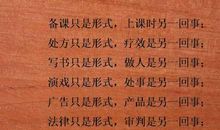 备课只是形式，上课时另一回事；
处方只是形式，疗效是另一回事；
写书只是形式，做人是另一回事；
演戏只是形式，处事是另一回事；
广告只是形式，产品是另一回事；
法律只是形式，审判是另一回事；